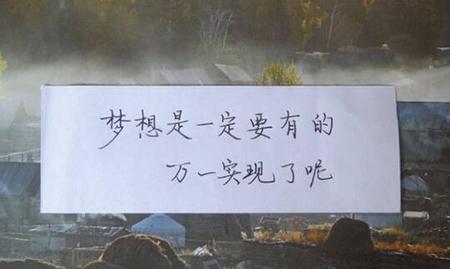 梦想是一定要有的
万一实现了呢